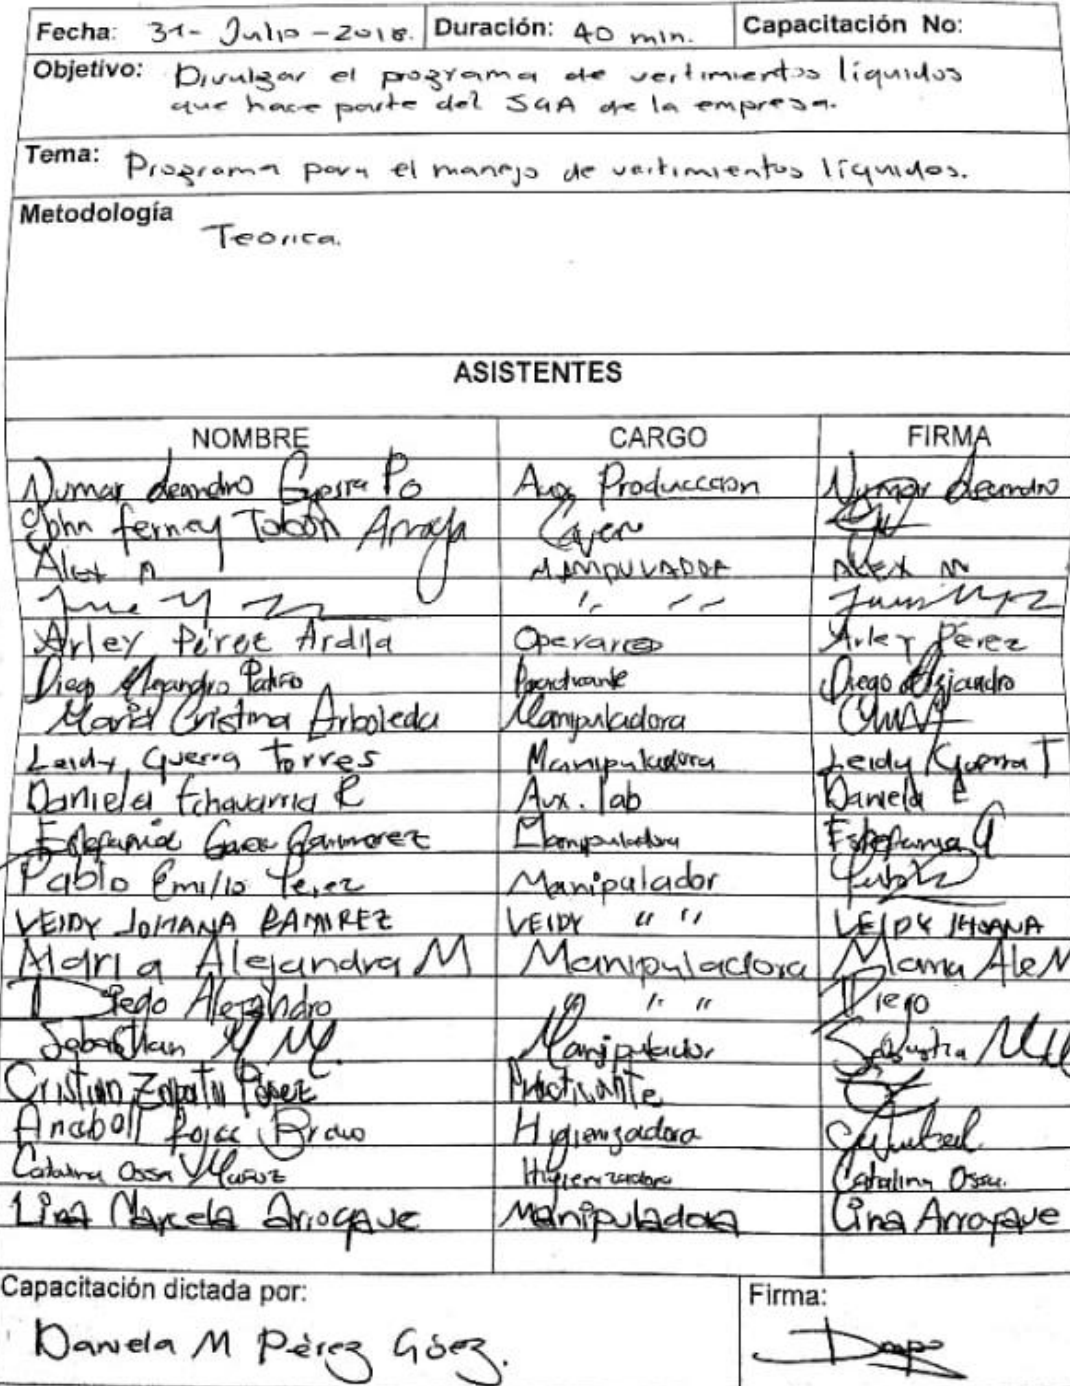 Fecha: 31-Julio-2018. Duración: 40 min. Capacitación No:
Objetivo: Divulgar el programa de vertimientos líquidos
que hace parte del SGA de la empresa.
Tema: Programa para el manejo de vertimientos líquidos.
Metodología
Teorica.
ASISTENTES
NOMBRE CARGO FIRMA
Numar Leandro Aux Produccion Numar Leandro
John ferney Tobón
Alex M MANIPULADOR ALEX M
" "
Arley Pérez Ardila Operario Arley Pérez
Diego Alejandro Patiño Practicante Diego Alejandro
Maria Cristina Arboleda Manipuladora
Leidy Guerra Torres Manipuladora Leidy Guerra T
Daniela Echavarria R Aux. lab Daniela E
Estefania Manipuladora Estefania G
Pablo Emilio Perez Manipulador
LEIDY JOHANA RAMIREZ LEIDY " " LEIDY JHOANA
Maria Alejandra M Manipuladora Maria Ale M
Diego Alejandro " " Diego
Sebastian M M. Manipulador
Cristian Zapata Perez Practicante
Higienizadora
Catalina Ossa Muñoz Higienizadora Catalina Ossa.
Lina Marcela Arroyave Manipuladora Lina Arroyave
Capacitación dictada por: Firma:
Daniela M Pérez Góez.